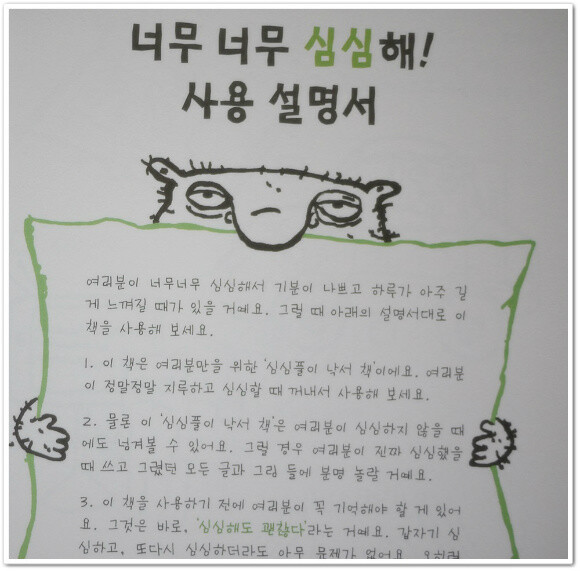 너무 너무 심심해!
사용 설명서
여러분이 너무너무 심심해서 기분이 나쁘고 하루가 아주 길
게 느껴질 때가 있을 거예요. 그럴 때 아래의 설명서대로 이
책을 사용해 보세요.
1. 이 책은 여러분만을 위한 '심심풀이 낙서 책'이에요. 여러분
이 정말정말 지루하고 심심할 때 꺼내서 사용해 보세요.
2. 물론 이 '심심풀이 낙서 책'은 여러분이 심심하지 않을 때
에도 넘겨볼 수 있어요. 그럴 경우 여러분이 진짜 심심했을
때 쓰고 그렸던 모든 글과 그림 들에 분명 놀랄 거예요.
3. 이 책을 사용하기 전에 여러분이 꼭 기억해야 할 게 있어
요. 그것은 바로, '심심해도 괜찮다'라는 거예요. 갑자기 심
심하고, 또다시 심심하더라도 아무 문제가 없어요. 오히려